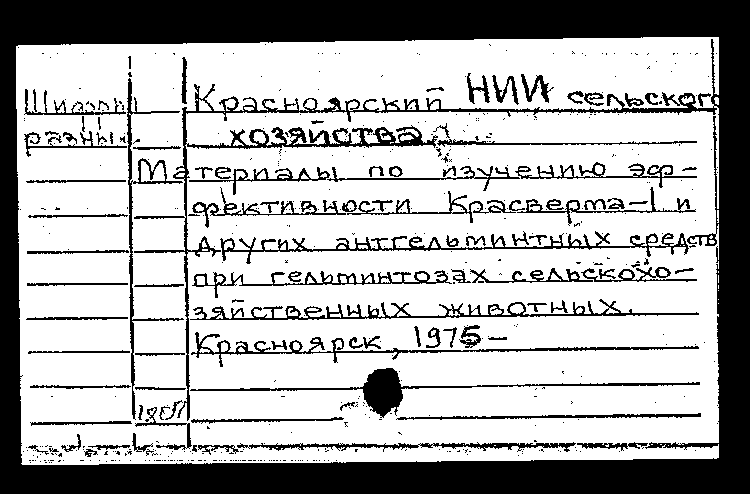 Шифры Красноярский НИИ сельского
разные хозяйства.
Материалы по изучению эф-
фективности Красверма-1 и
других антгельминтных средств
при гельминтозах сельскохо-
зяйственных животных.
Красноярск, 1975-